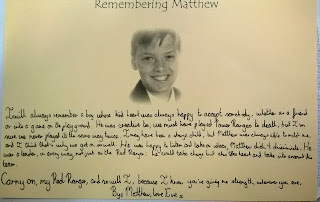 Remembering Matthew
I will always remember a boy whose kind heart was always happy to accept somebody, whether as a friend
or into a game on the playground. He was creative too, we must have played Power Rangers to death, but I'm
sure we never played it the same way twice. I may have been a strange child, but Matthew was always able to
and I think that's why we got on so well. He was happy to listen and take in ideas, Matthew didn't discriminate. He
was a leader, in every way, not just as the Red Ranger. He would take charge but also take heart and take into account the
team.
Carry on, my Red Ranger, and so will I, because I know you're giving me strength, wherever you are.
Bye Matthew, love x